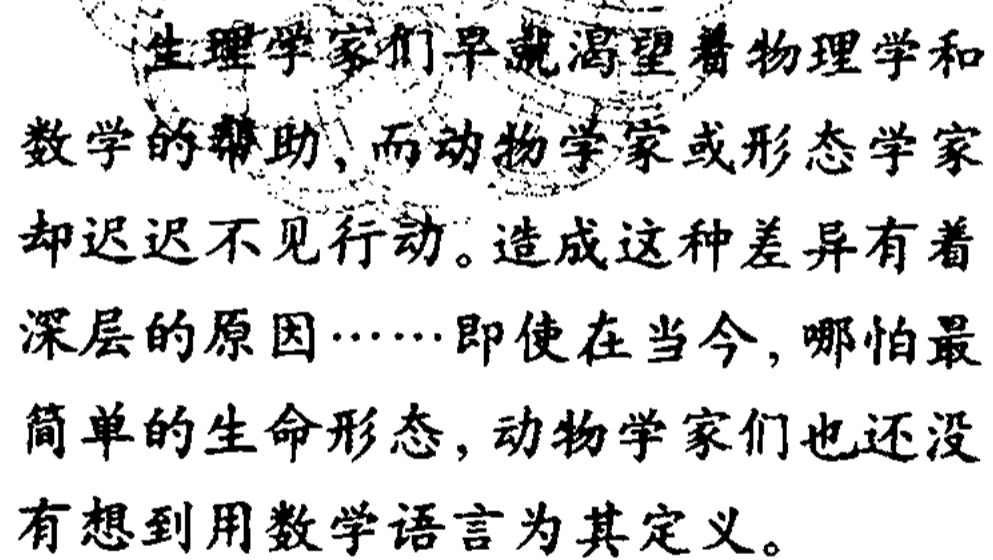 生理学家们早就渴望着物理学和
数学的帮助，而动物学家或形态学家
却迟迟不见行动。造成这种差异有着
深层的原因……即使在当今，哪怕最
简单的生命形态，动物学家们也还没
有想到用数学语言为其定义。